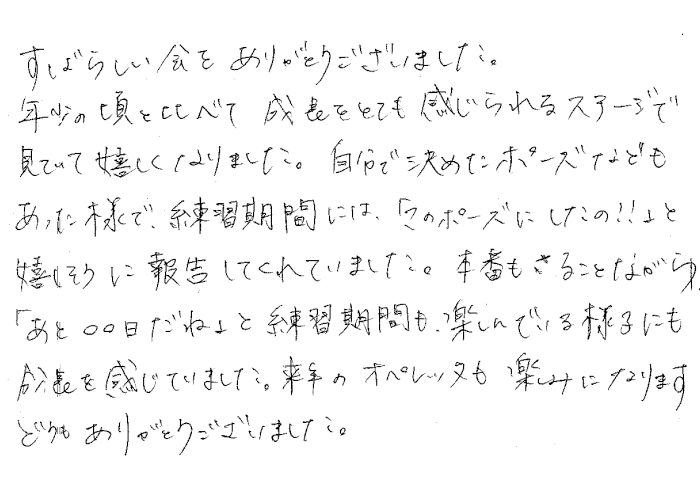 すばらしい会を ありがとうございました。
年少の頃と比べて 成長をとても 感じられるステージで
見ていて 嬉しくなりました。 自分で決めたポーズなども
あった様で、練習期間には、「このポーズにしたの!!」と
嬉しそうに 報告してくれていました。本番もさることながら、
「あと〇〇日だね」と 練習期間も、楽しんでいる様子にも
成長を感じていました。来年の オペレッタも 楽しみになります
どうも ありがとうございました。